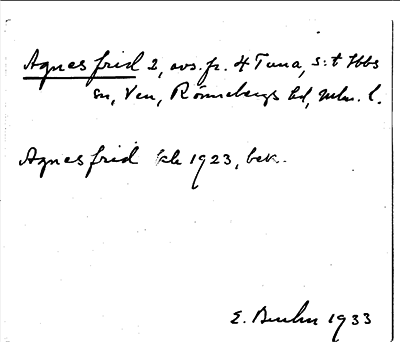 Agnesfrid 2, avs. fr. 4 Tuna, s:t Ibbs
sn, Ven, Rönnebergs hd, Mlm. l.
Agnesfrid kk 1923, bek.
E. Bruhn 1933